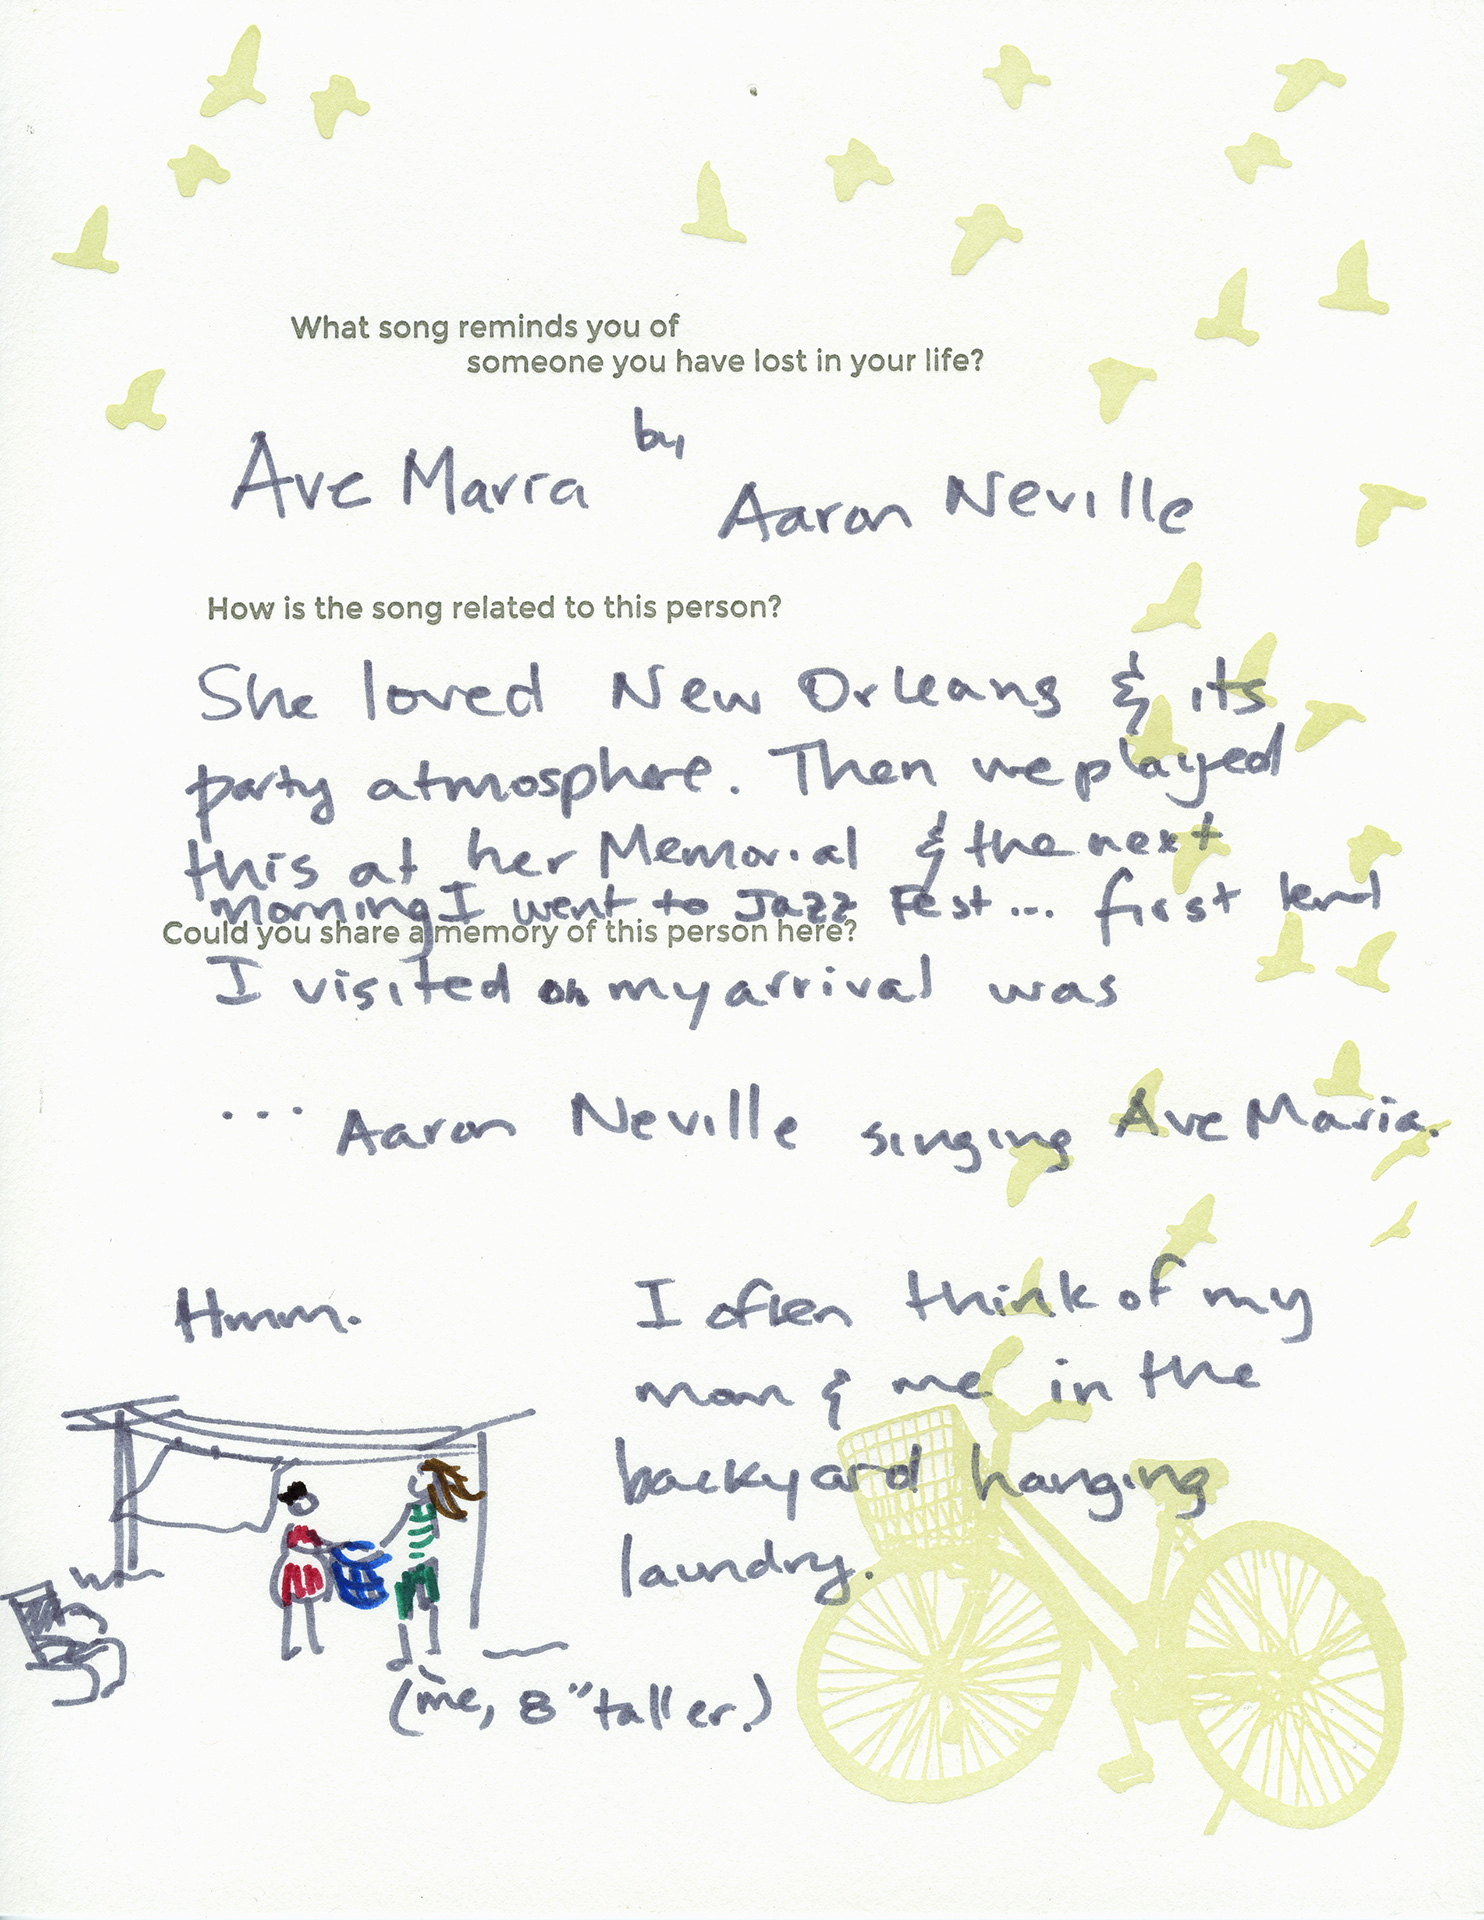 What song reminds you of
someone you have lost in your life?
Ave Maria by Aaron Neville
How is the song related to this person?
She loved New Orleans & its
party atmosphere. Then we played
this at her Memorial & the next
morning I went to Jazz Fest... first tent
Could you share a memory of this person here?
I visited on my arrival was
... Aaron Neville singing Ave Maria.
Hmm.
I often think of my
mom & me in the
backyard hanging
laundry.
(me, 8" taller.)